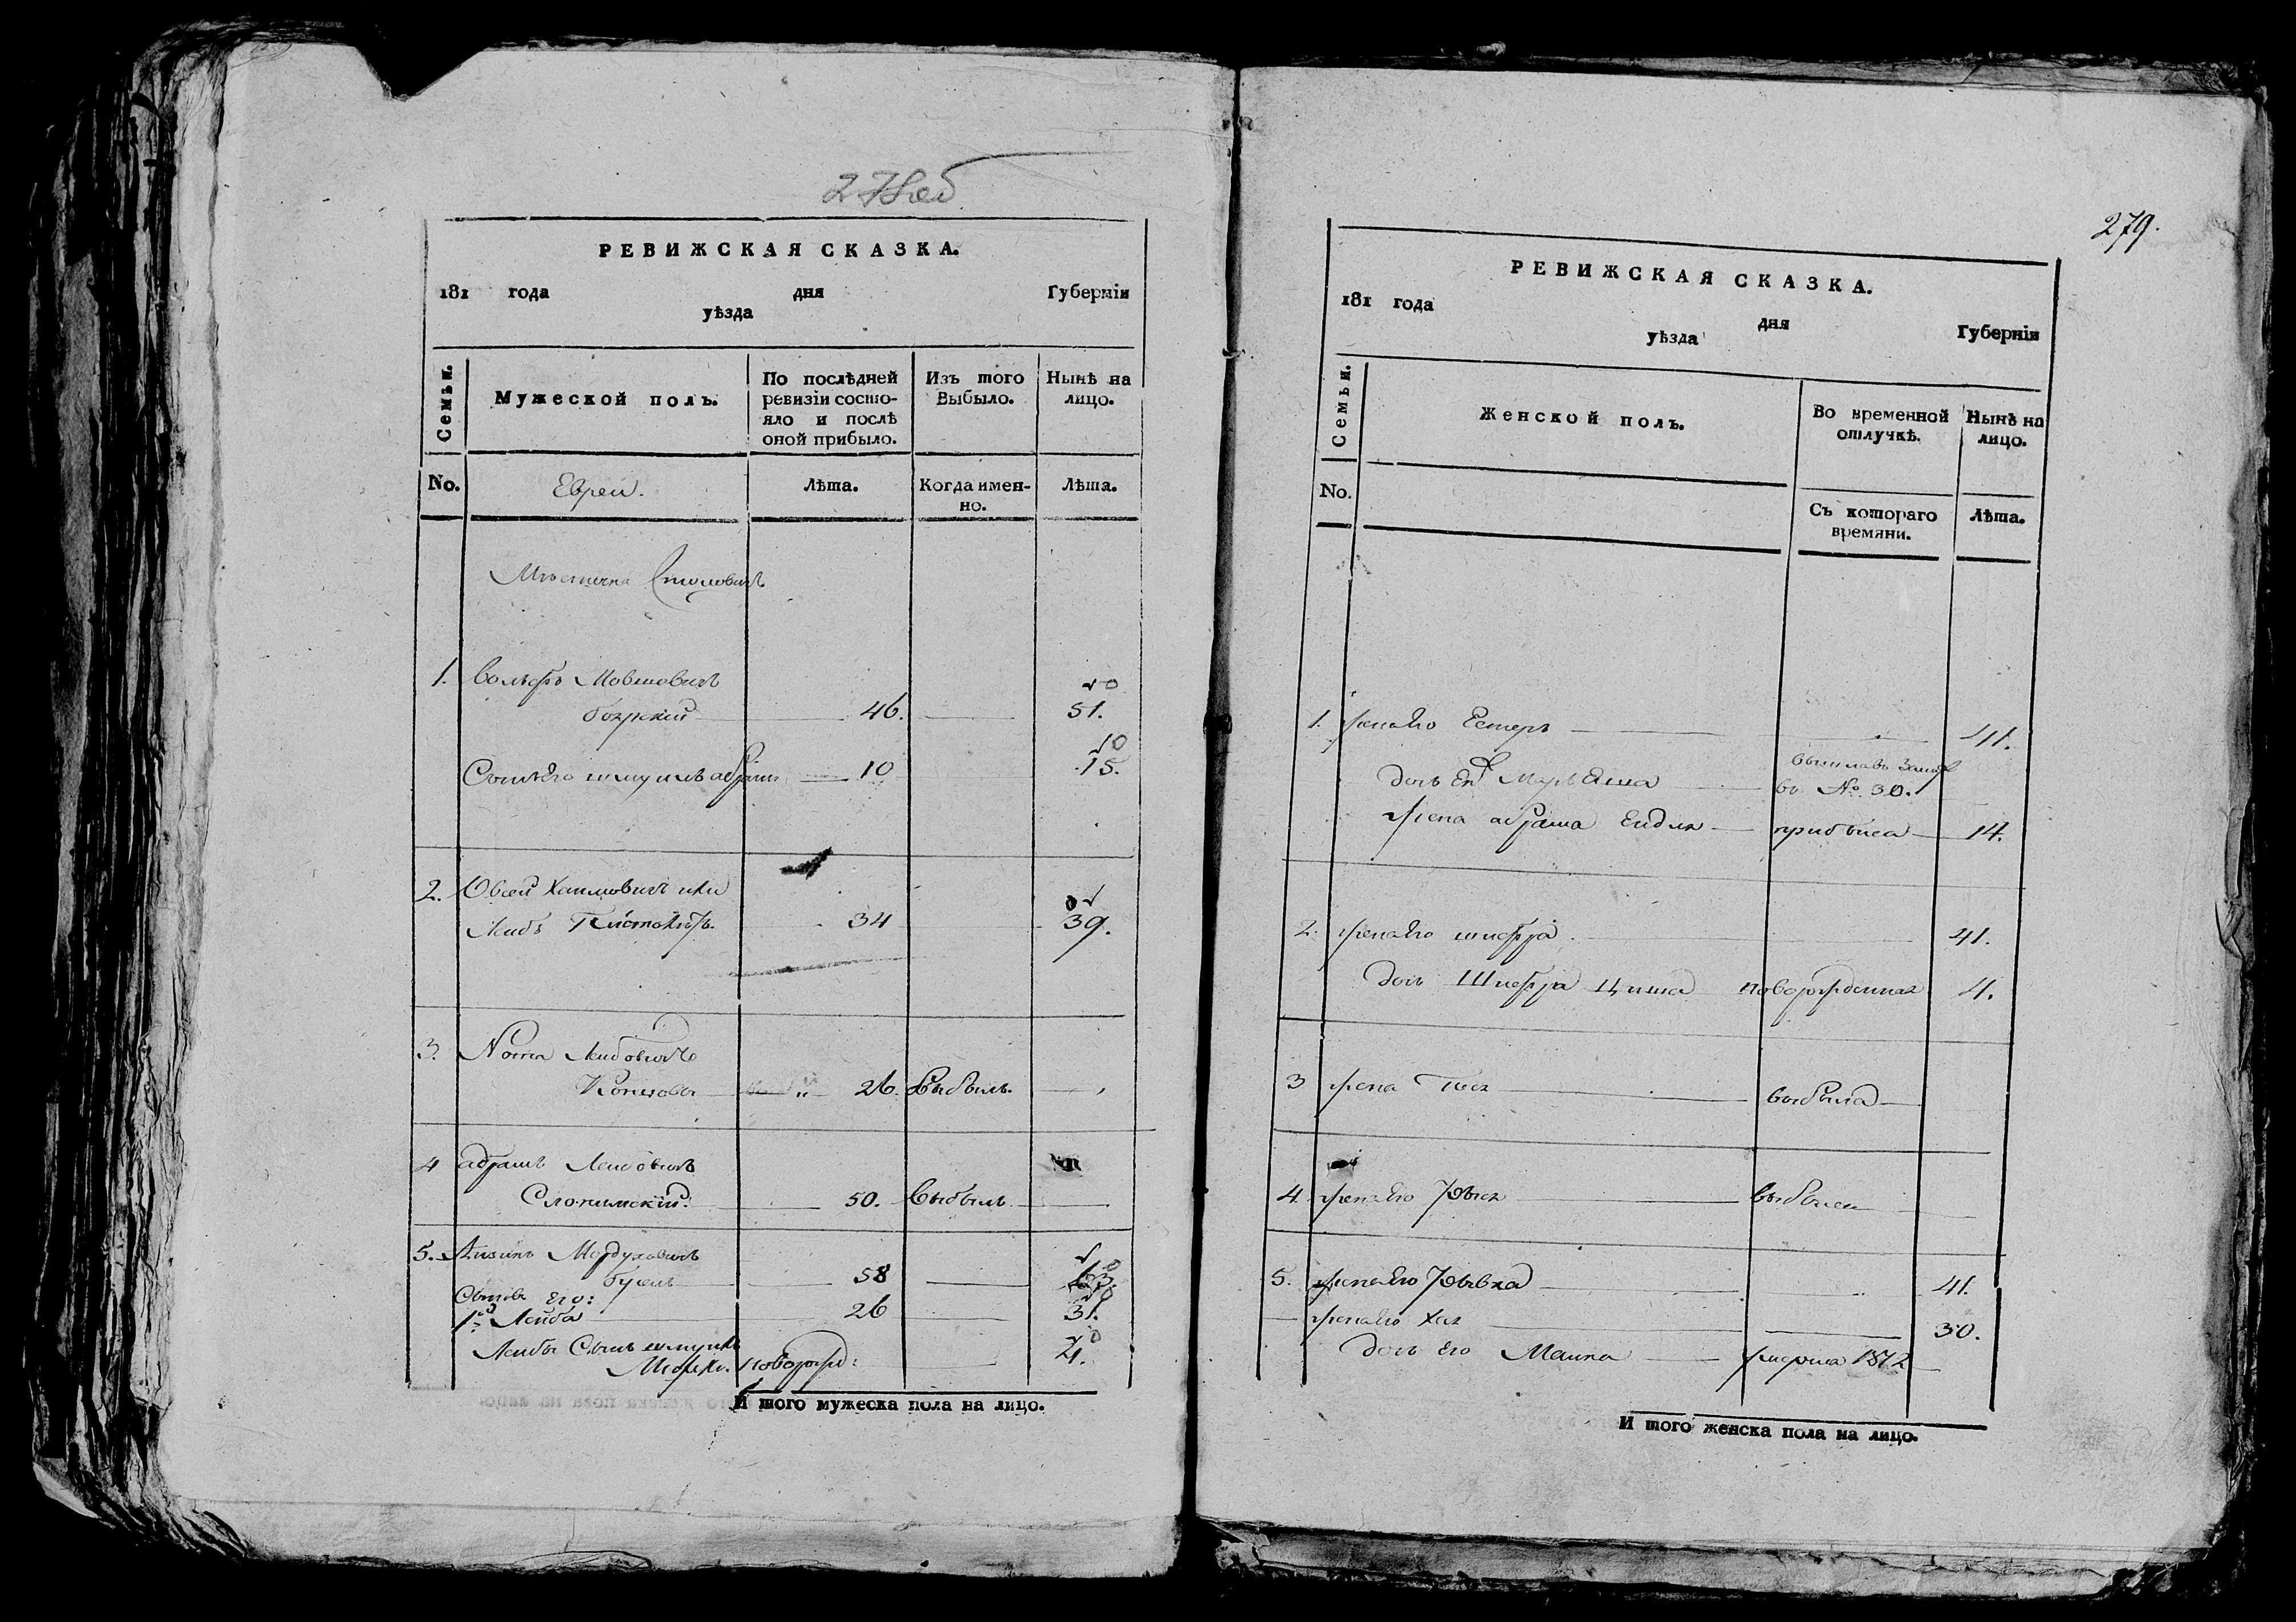 278об
РЕВИЖСКАЯ СКАЗКА.
181 года дня Губерніи
уѣзда
Семьи.
Мужеской полъ.
По послѣдней ревизіи состояло и послѣ оной прибыло.
Изъ того Выбыло.
Нынѣ на лицо.
No.
Евреи.
Лѣта.
Когда именно.
Лѣта.
Мѣстечка Столовичъ
1. Вольфъ Мовшовичъ
46. 51.
10 15.
2. Овсей Хаимовичъ или
Лейбъ 34 39.
3. Лейбовичъ
26. Выбылъ
4 абрамъ Лейбовичъ
Слонимскій 50. выбылъ
5. Мордуховичъ
58 63.
Сыновья его:
1й Лейба 26 31.
Лейбы Сынъ
новорожд: 4.
И того мужеска пола на лицо.
279.
РЕВИЖСКАЯ СКАЗКА.
181 года дня Губерніи
уѣзда
Семьи.
Женской полъ.
Во временной отлучкѣ.
Нынѣ на лицо.
No.
Съ котораго времяни.
Лѣта.
1. жена его Естеръ 41.
дочь его
въ No. 30.
жена абрама прибыла 14.
2. жена его шифра 41.
дочь Шифра новорожденная 4.
3 жена выбыла
4. жена его выбыла
5. жена его 41.
жена его Хая 30.
дочь его умерла 1812
И того женска пола на лицо.